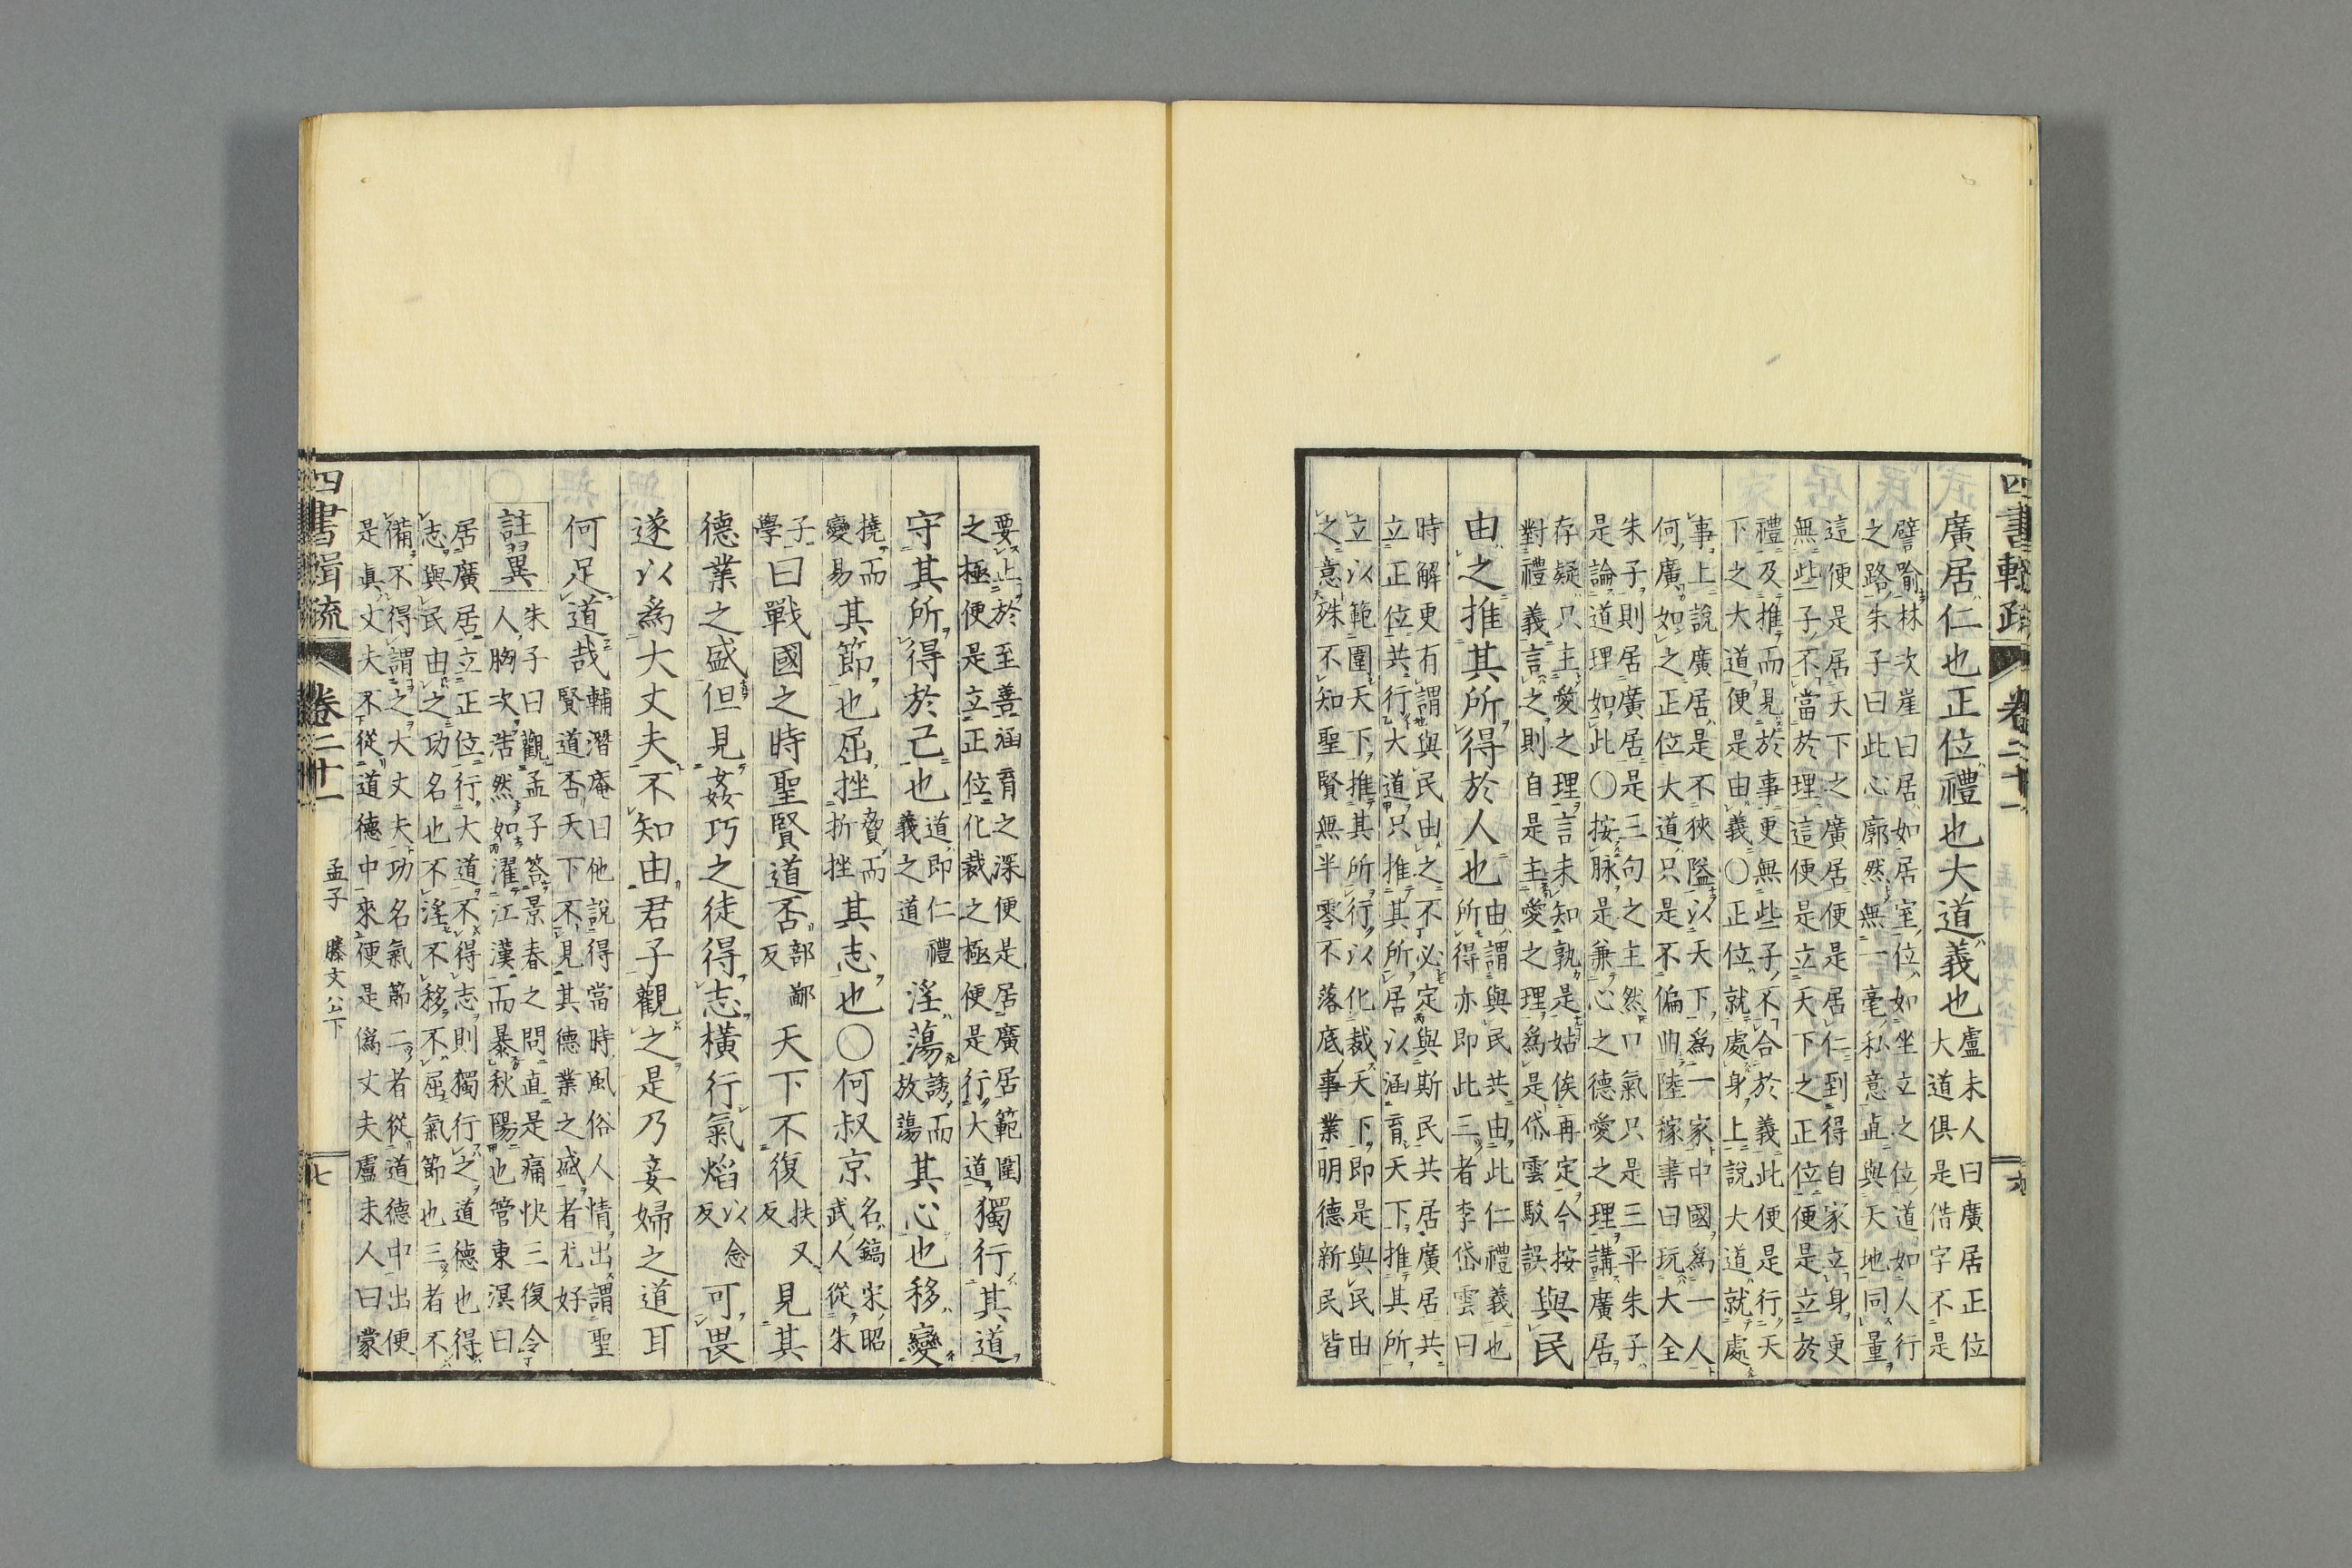 四書輯疏 卷二十一
廣居仁也正位禮也大道義也盧未人曰廣居正位
大道俱是借字不是
譬喻林次崖曰居如居室位如坐立之位道如人行
之路朱子曰此心廓然無一毫私意直與天地同量
這便是居天下之廣居便是居仁到得自家立身更
無些子不當於理這便是立天下之正位便是立於
禮及推而見於事更無些子不合於義此便是行天
下之大道便是由義○正位就處身上說大道就處
事上說廣居是不狹隘以天下爲一家中國爲一人
何廣如之正位大道只是不偏曲陸稼書曰玩大全
朱子則居廣居是三句之主然口氣只是三平朱子
是論道理如此○按脉是兼心之德愛之理講廣居
存疑只主愛之理言未知孰是姑俟再定今按
對禮義言之則自是主愛之理爲是岱雲駁誤與民
由之推其所得於人也由謂與民共由此仁禮義也
所得亦即此三者李岱雲曰
時解更有謂與民由之不必定與斯民共居廣居共
立正位共行大道只推其所居以涵育天下推其所
立以範圍天下推其所行以化裁天下即是與民由
之意殊不知聖賢無半零不落底事業明德新民皆
要止於至善涵育之深便是居廣居範圍
之極便是立正位化裁之極便是行大道獨行其道
守其所得於己也道即仁禮
義之道淫蕩誘而
放蕩其心也移變
撓而
變易其節也屈挫貲而
折挫其志也○何叔京名鎬宋昭
武人從朱
子
學曰戰國之時聖賢道否部鄙
反天下不復扶又
反見其
德業之盛但見姦巧之徒得志橫行氣焰以念
反可畏
遂以爲大丈夫不知由君子觀之是乃妾婦之道耳
何足道哉輔潛庵曰他說得當時風俗人情出謂聖
賢道否天下不見其德業之盛者尤好
註翼朱子曰觀孟子答景春之問直是痛快三復令
人胸次浩然如濯江漢而暴秋陽也管東溟曰
居廣居立正位行大道不得志則獨行之道德也得
志與民由之功名也不淫不移不屈氣節也三者不
備不得謂之大丈夫功名氣節二者從道德中出便
是眞丈夫不從道德中來便是僞丈夫盧未人曰蒙
四書輯疏 卷二十一 孟子 滕文公下 七